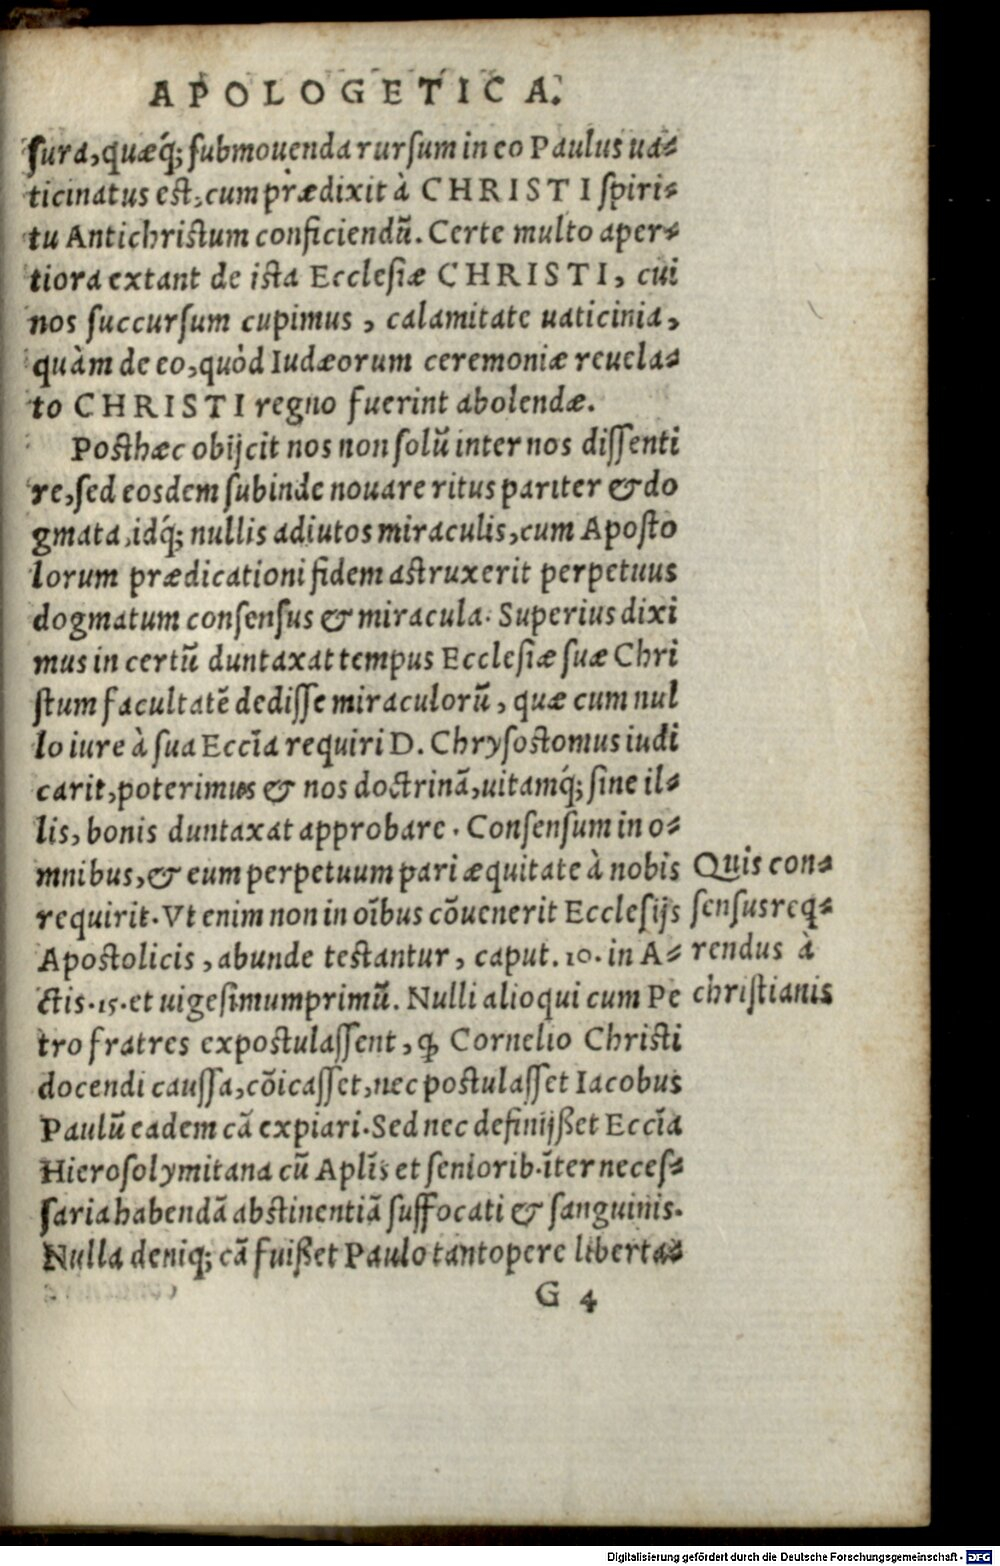 APOLOGETICA.
ſura, quæq́; ſubmouenda rurſum in eo Paulus ua⸗
ticinatus eſt, cum prædixit à CHRISTI ſpiri⸗
tu Antichriſtum conficiendū. Certe multo aper⸗
tiora extant de iſta Eccleſiæ CHRISTI, cui
nos ſuccurſum cupimus, calamitate uaticinia,
quàm de eo, quòd Iudæorum ceremoniæ reuela⸗
to CHRISTI regno fuerint abolendæ.
Poſthæc obijcit nos non ſolū inter nos diſſenti
re, ſed eosdem ſubinde nouare ritus pariter & do
gmata, idq́; nullis adiutos miraculis, cum Apoſto
lorum prædicationi fidem aſtruxerit perpetuus
dogmatum conſenſus & miracula. Superius dixi
mus in certū duntaxat tempus Eccleſiæ ſuæ Chri
ſtum facultatē dediſſe miraculorū, quæ cum nul
lo iure à ſua Eccīa requiri D. Chryſoſtomus iudi
carit, poterimus & nos doctrinā, uitamq́; ſine il⸗
lis, bonis duntaxat approbare. Conſenſum in o⸗
mnibus, & eum perpetuum pari æquitate à nobis
requirit. Vt enim non in oībus cōuenerit Eccleſijs
Apoſtolicis, abunde teſtantur, caput. 10. in A⸗
ctis. 15. et uigeſimumprimū. Nulli alioqui cum Pe
tro fratres expoſtulaſſent, ꝙ Cornelio Chriſti
docendi cauſſa, cōicaſſet, nec poſtulaſſet Iacobus
Paulū eadem cā expiari. Sed nec definijßet Eccīa
Hieroſolymitana cū Aplīs et ſeniorib. īter neceſ⸗
ſaria habendā abſtinentiā ſuffocati & ſanguinis.
Nulla deniq; cā fuißet Paulo tantopere liberta⸗
G 4
Quis con⸗
ſenſus req⸗
rendus à
chriſtianis
Digitalisierung gefördert durch die Deutsche Forschungsgemeinschaft - DFG